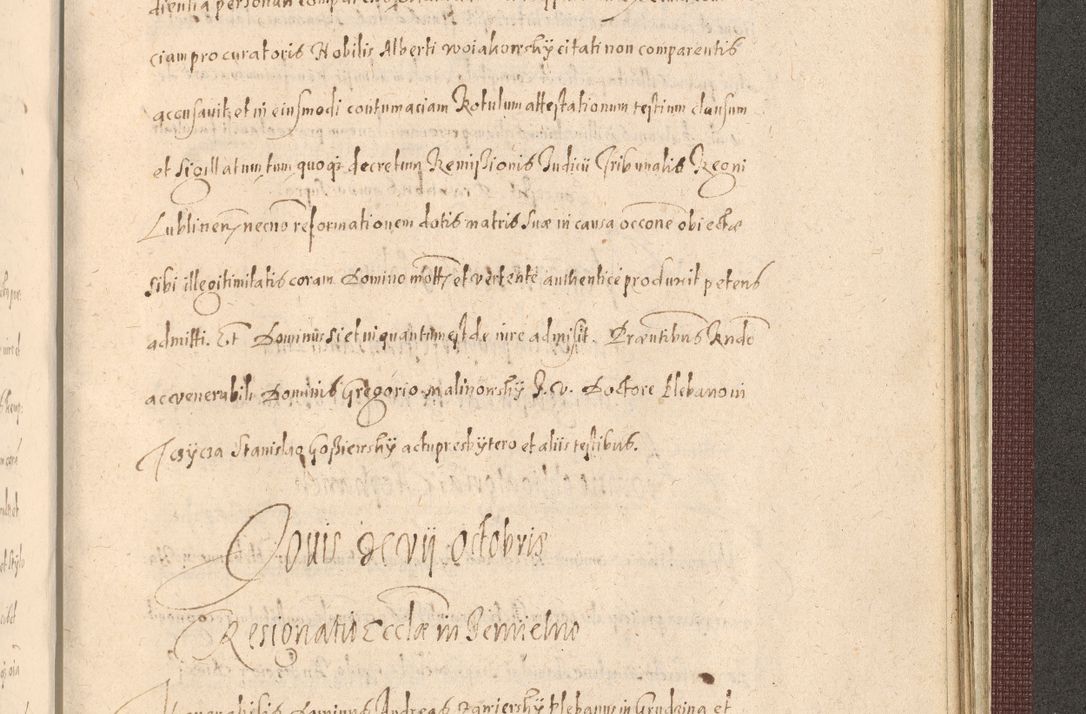 dientia personali
ciam procuratoris Nobilis Alberti Woiakowsky citati non comparentis
accusavit et in eiusmodi contumaciam Rotulum attestationum testium clausum
et sigillatum tum quoqȝ decretum Remissionis Judicii Tribunalis Regni
Lublinen necno reformationem dotis matris suæ in causa occone obiectæ
sibi illegitimitatis coram Domino et vertente authentice produxit petens
admitti. Et Dominus si et in quantum est de iure admisit. Præntibus Rndo
ac venerabili Dominis Gregorio Malinowsky J. V. Doctore Plebano in
Stanislao Goßiewsky actu presbytero et aliis testibus.
Jovis xvii Octobris
Resignatio Ecclæ in Jemielno
Venerabilis Dominus Andreas Plebanus in Grudzina et